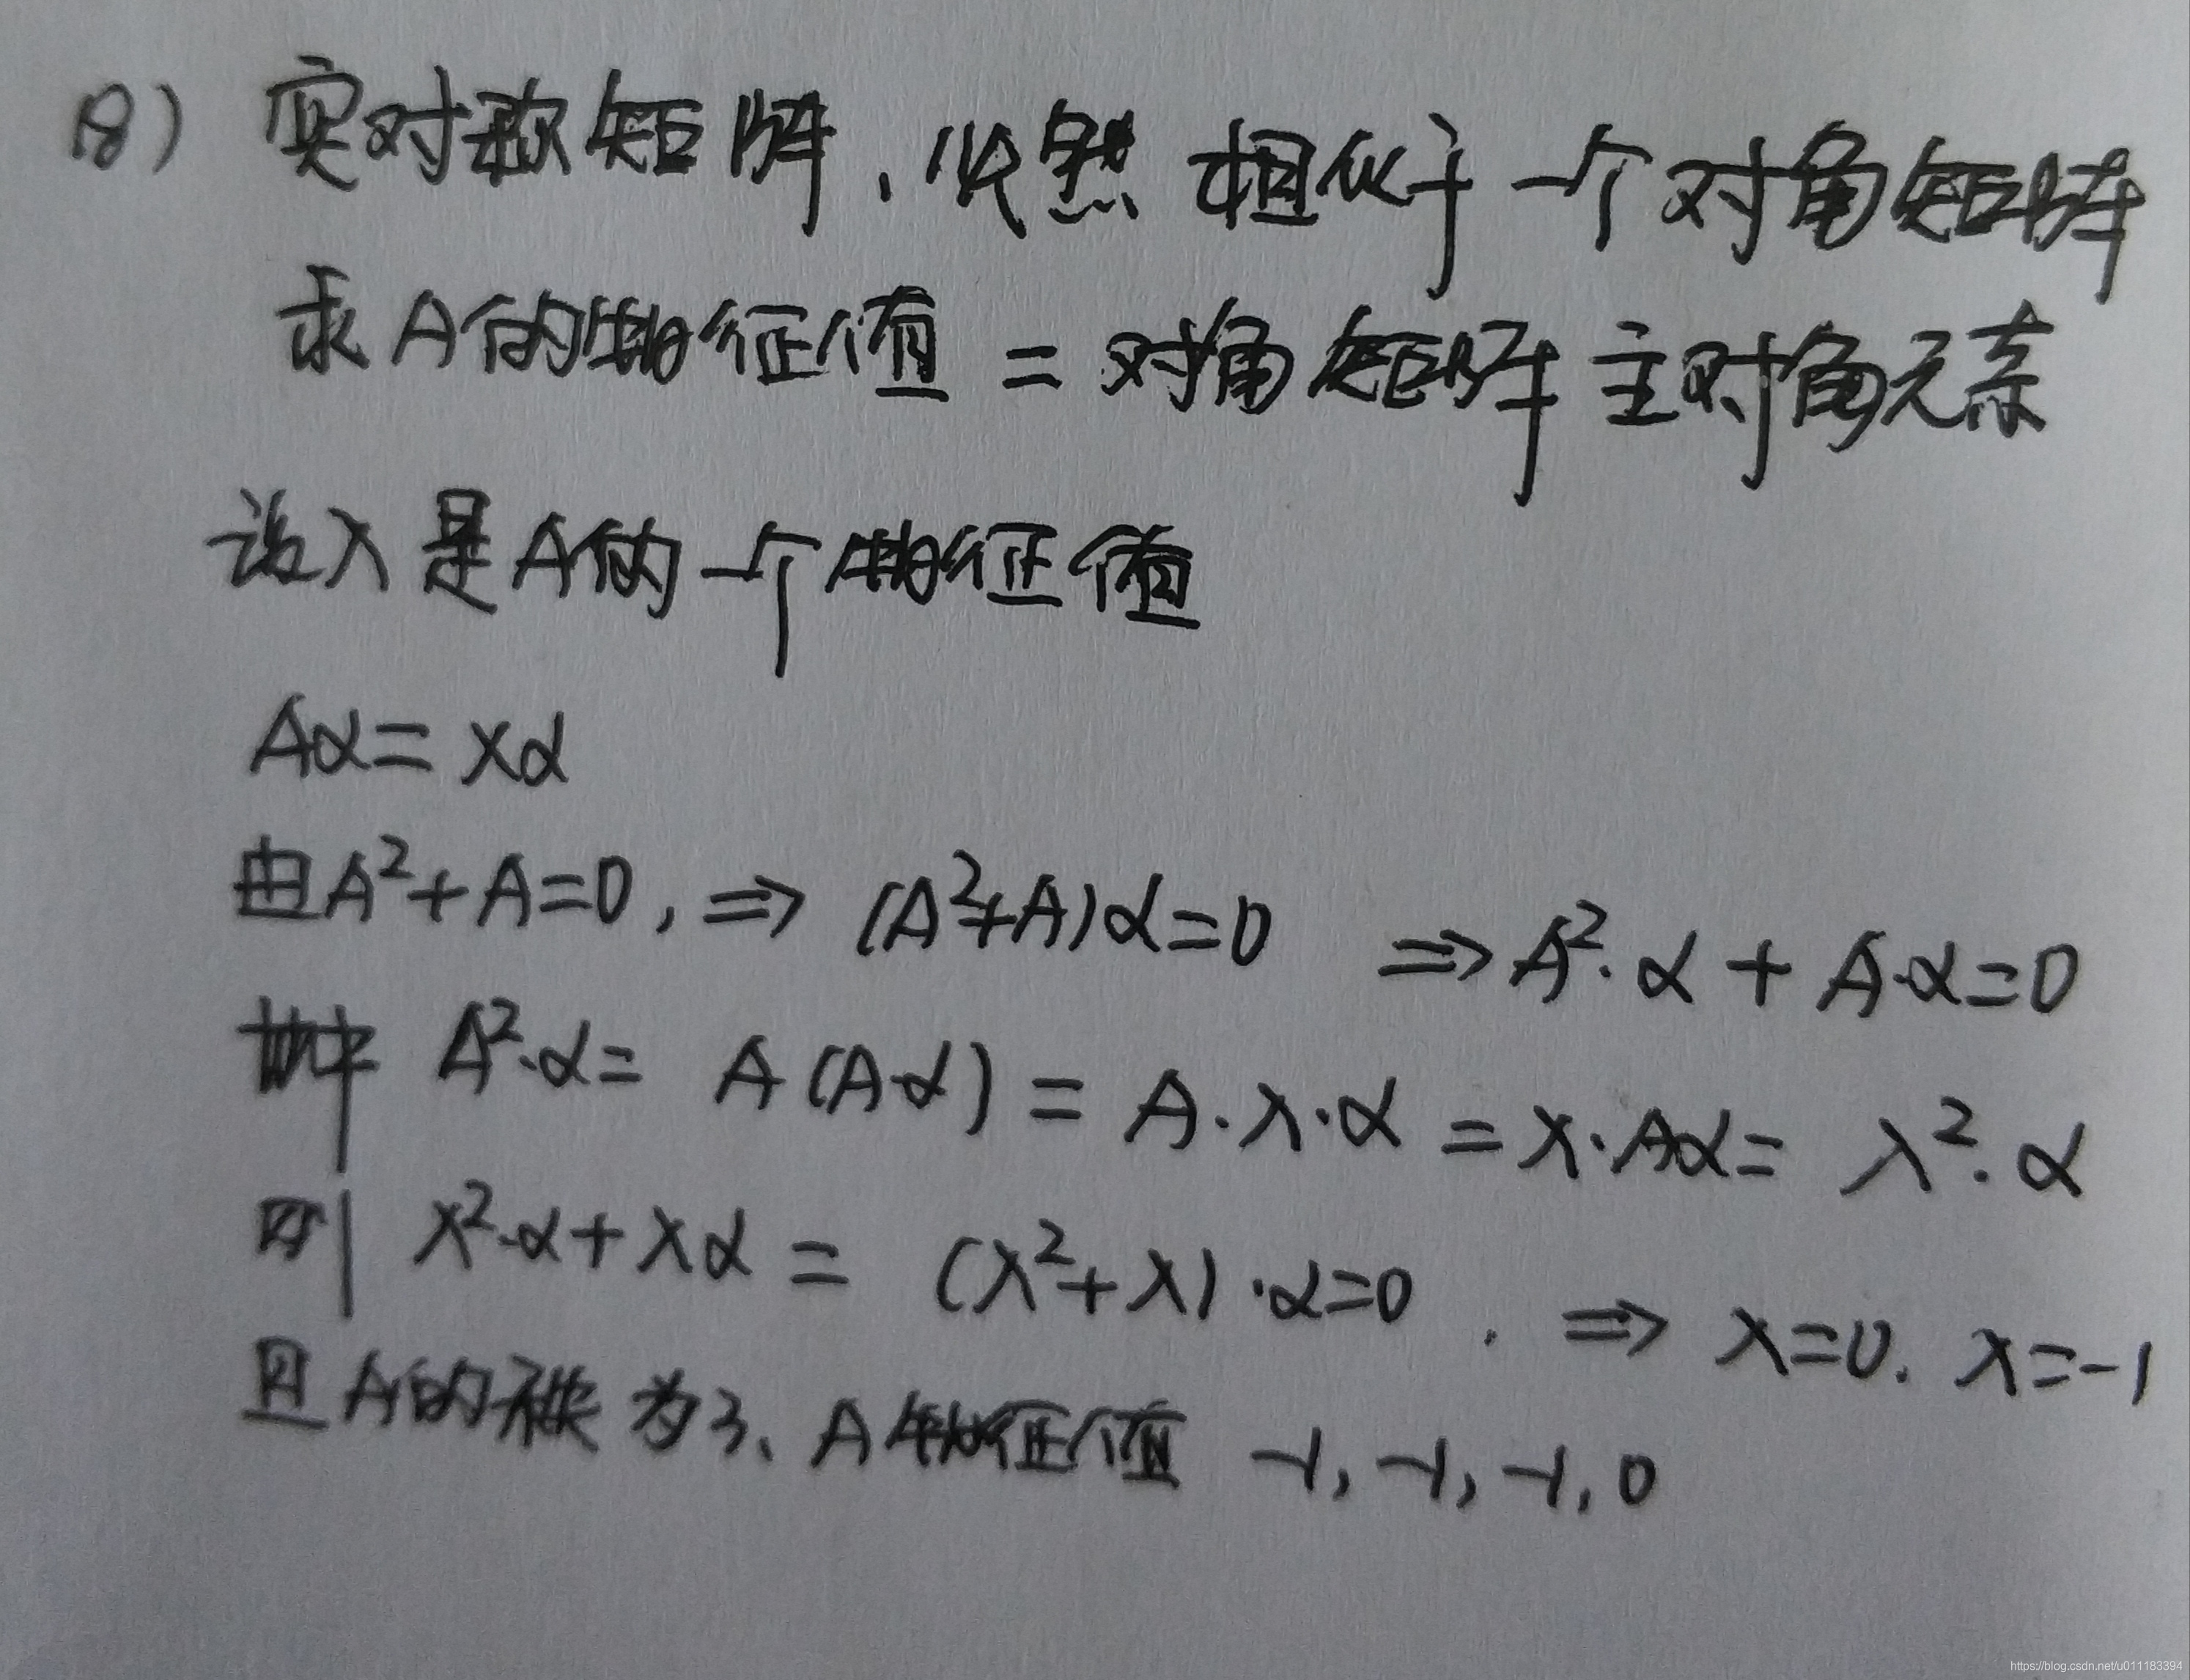 (8) 实对称矩阵,必然相似于一个对角矩阵
求A的特征值 = 对角矩阵主对角元素
设λ是A的一个特征值
Aα=λα
由A²+A=0, ⇒ (A²+A)α=0 ⇒A²·α + A·α=0
其中 A²·α= A(A·α) = A·λ·α =λ·Aα= λ²·α
则 λ²·α+λα = (λ²+λ)·α=0. ⇒ λ=0. λ=-1
且A的秩为3、A特征值 -1, -1, -1, 0
https://blog.csdn.net/u011183394